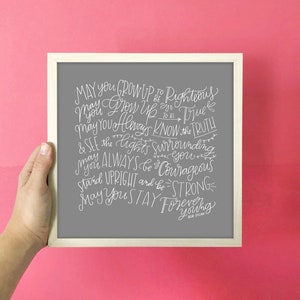 MAY you GROW UP to be Righteous
May you Grow Up to be True
may you Always KNOW the TRUTH
& SEE the Lights Surrounding you
may you ALWAYS be Courageous
stand UPRIGHT and be STRONG
May You STAY Forever young
BOB DYLAN